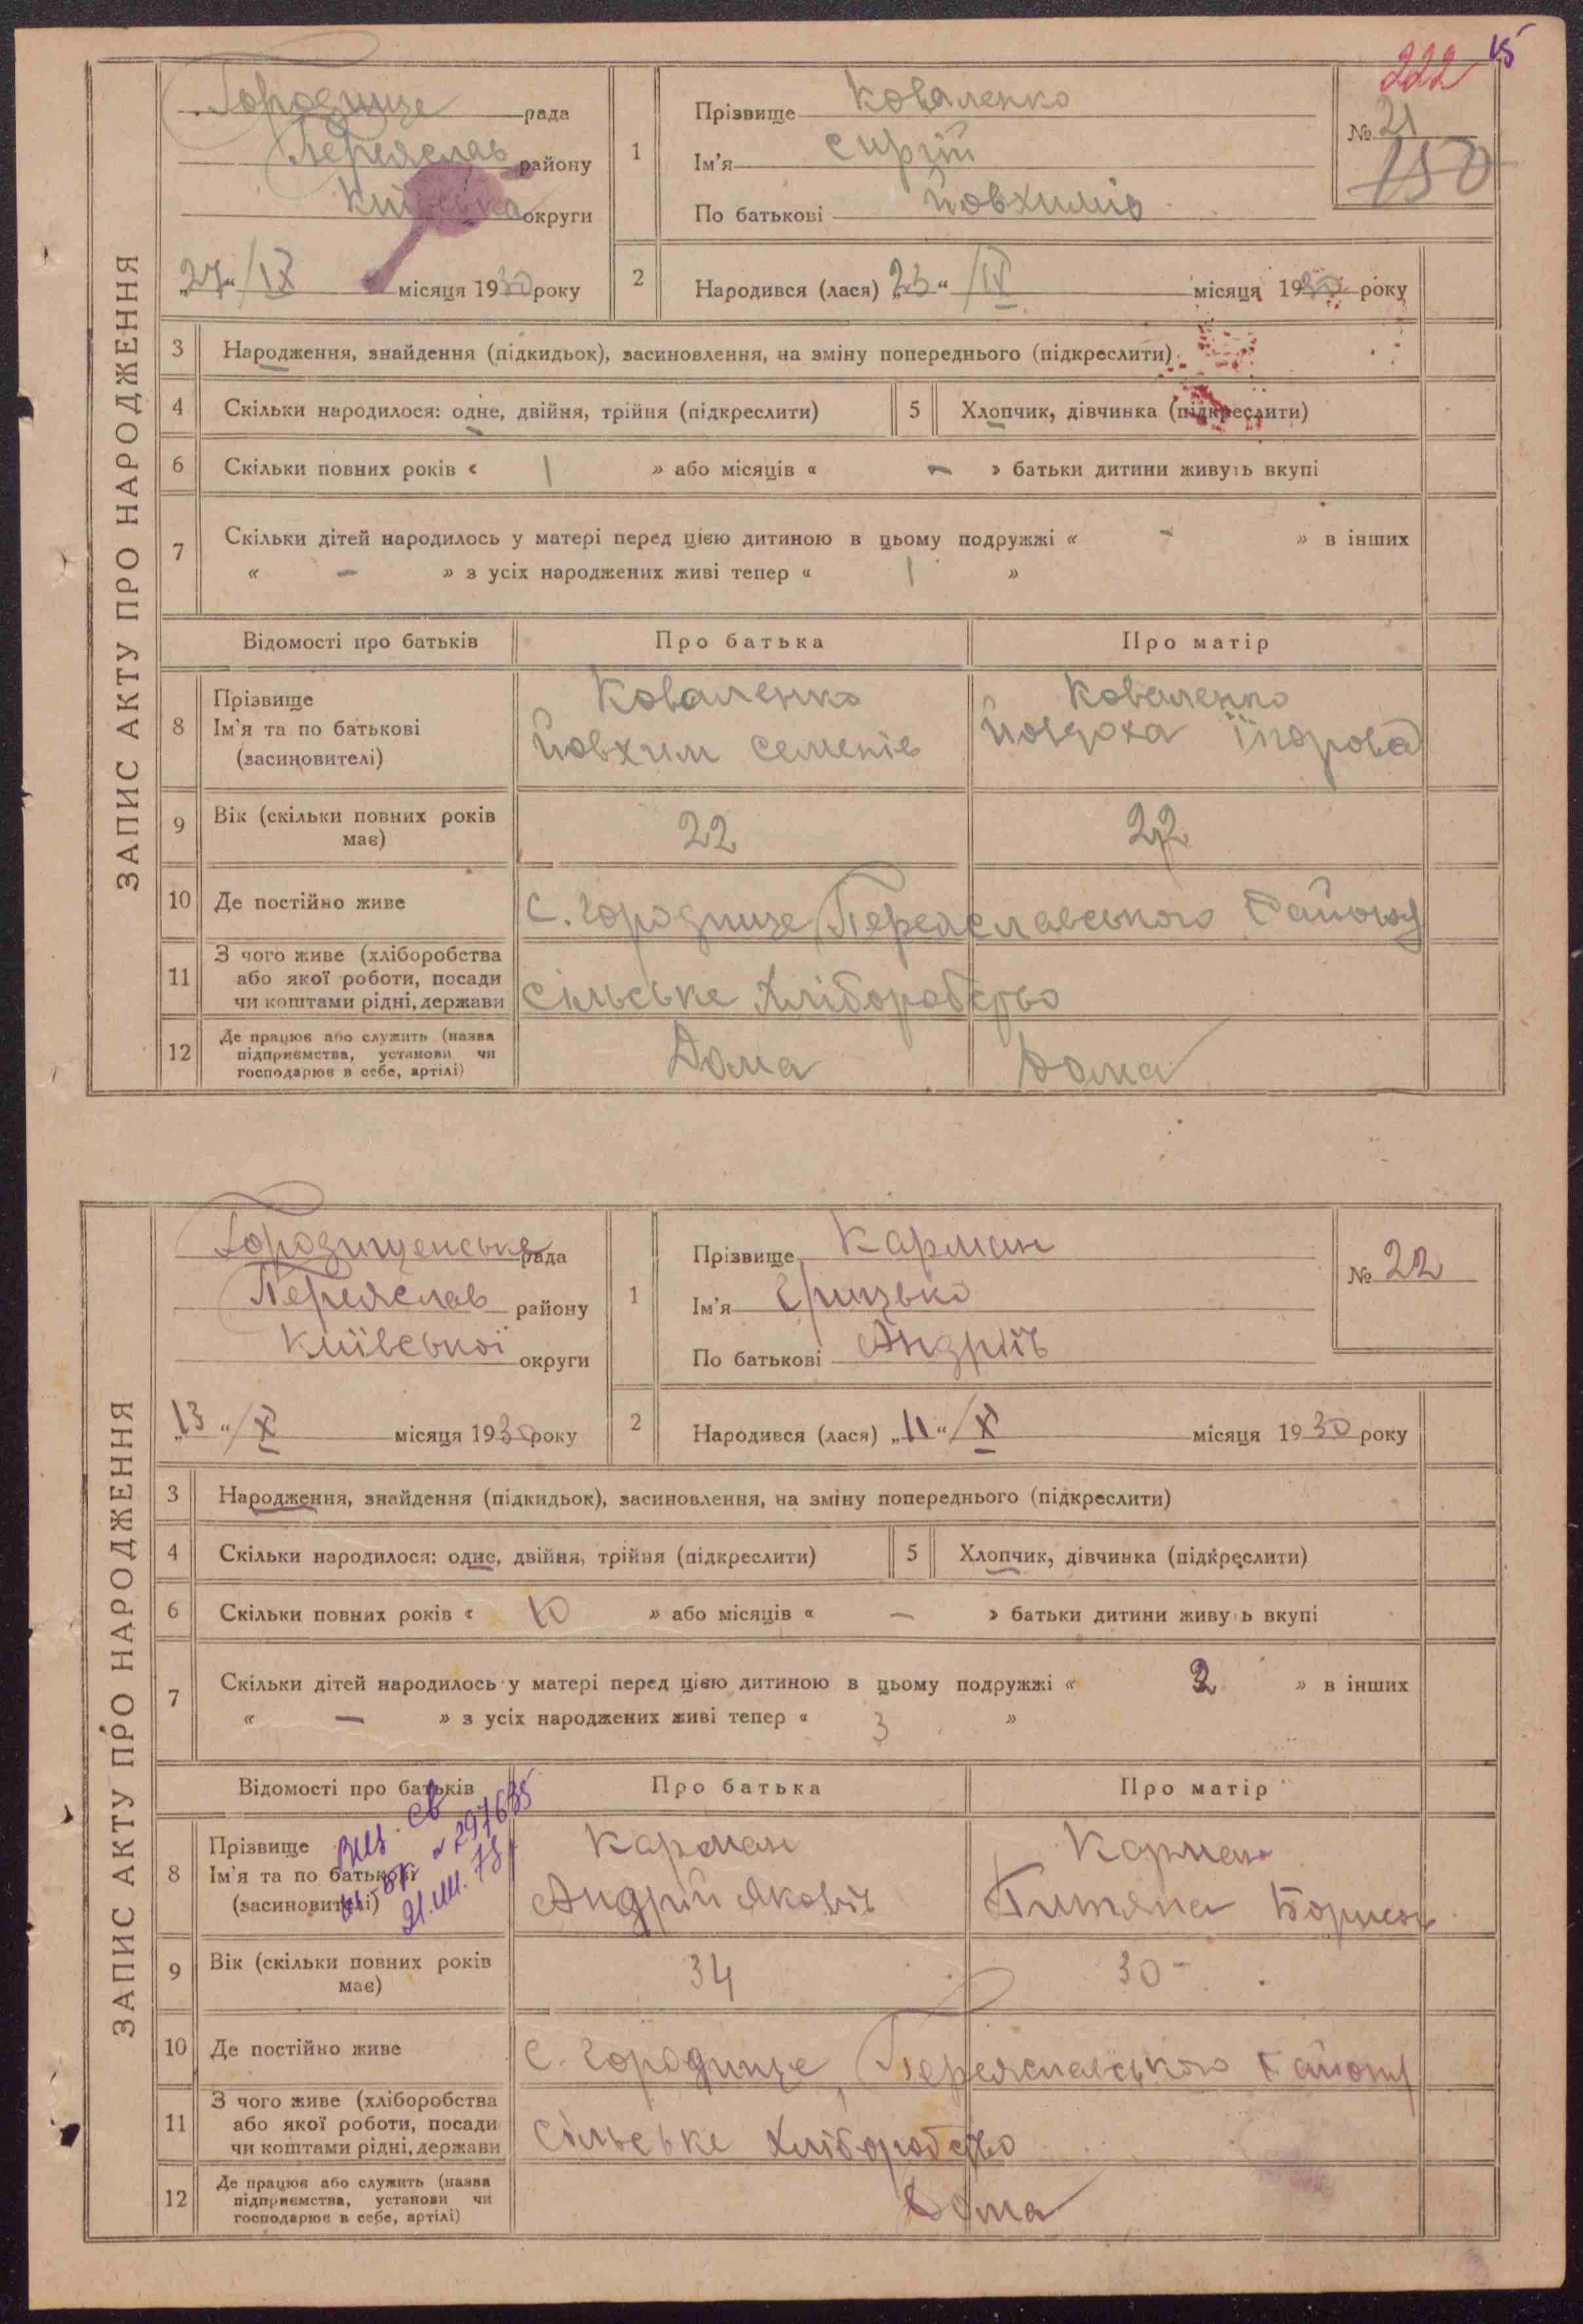 222 15
ЗАПИС АКТУ ПРО НАРОДЖЕННЯ
Городище рада
Переяслав району
Київська округи
„27“ /IX місяця 1930 року
1 Прізвище Коваленко
Ім'я Сиргій
По батькові Йовхимів
№ 21
150
2 Народився (лася) „23“ /IX місяця 1930 року
3 Народження, знайдення (підкидьок), засиновлення, на зміну попереднього (підкреслити)
4 Скільки народилося: одне, двійня, трійня (підкреслити) 5 Хлопчик, дівчинка (підкреслити)
6 Скільки повних років « 1 » або місяців « — » батьки дитини живуть вкупі
7 Скільки дітей народилось у матері перед цією дитиною в цьому подружжі « - » в інших
« — » з усіх народжених живі тепер « 1 »
Відомості про батьків Про батька Про матір
8 Прізвище Коваленко Коваленко
Ім'я та по батькові Йовхим Семенів Йовдоха Їгорова
(засиновителі)
9 Вік (скільки повних років 22 22
має)
10 Де постійно живе С. Городище Переяславського Району
11 З чого живе (хліборобства
або якої роботи, посади
чи коштами рідні, держави Сільське Хліборобство
12 Де працює або служить (назва
підприємства, установи чи Дома Дома
господарює в себе, артілі)
ЗАПИС АКТУ ПРО НАРОДЖЕННЯ
Городищенська рада
Переяслав району
Київської округи
„13“ /X місяця 1930 року
1 Прізвище Карман
Ім'я Грицько
По батькові Андріїв
№ 22
2 Народився (лася) „11“ /X місяця 1930 року
3 Народження, знайдення (підкидьок), засиновлення, на зміну попереднього (підкреслити)
4 Скільки народилося: одне, двійня, трійня (підкреслити) 5 Хлопчик, дівчинка (підкреслити)
6 Скільки повних років « 10 » або місяців « — » батьки дитини живуть вкупі
7 Скільки дітей народилось у матері перед цією дитиною в цьому подружжі « 2 » в інших
« — » з усіх народжених живі тепер « 3 »
Відомості про батьків Про батька Про матір
8 Прізвище Карман Карман
Ім'я та по батькові Андрій Яковів Титяна Борисов
(засиновителі)
№ 297635
9 Вік (скільки повних років 34 30
має)
10 Де постійно живе С. Городище Переяславського Району
11 З чого живе (хліборобства
або якої роботи, посади
чи коштами рідні, держави Сільське Хліборобство
12 Де працює або служить (назва
підприємства, установи чи Дома
господарює в себе, артілі)